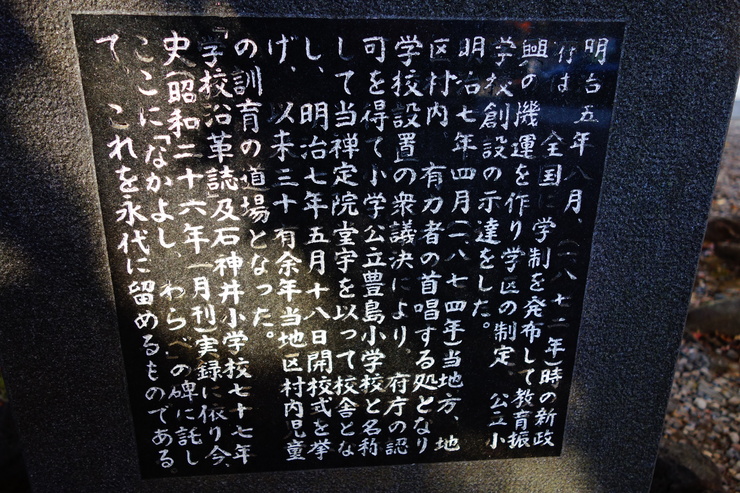 明治五年八月、(一八七二年)時の新政
府は、全国に学制を発布して教育振
興の機運を作り学区の制定、公立小
学校創設の示達をした。
明治七年四月(一八七四年)当地方、地
区村内、有力者の首唱する処となり
学校設置の衆議決により、府庁の認
可を得て小学公立豊島小学校と名称
して当禅定院堂宇を以って校舎とな
し、明治七年五月十八日開校式を挙
げ、以来三十有余年当地区村内児童
の訓育の道場となった。
「学校沿革誌及石神井小学校七十七年
史(昭和二十六年一月刊)実録に依り今、
ここに「なかよし、わらべ」の碑に託し
て、これを永代に留めるものである